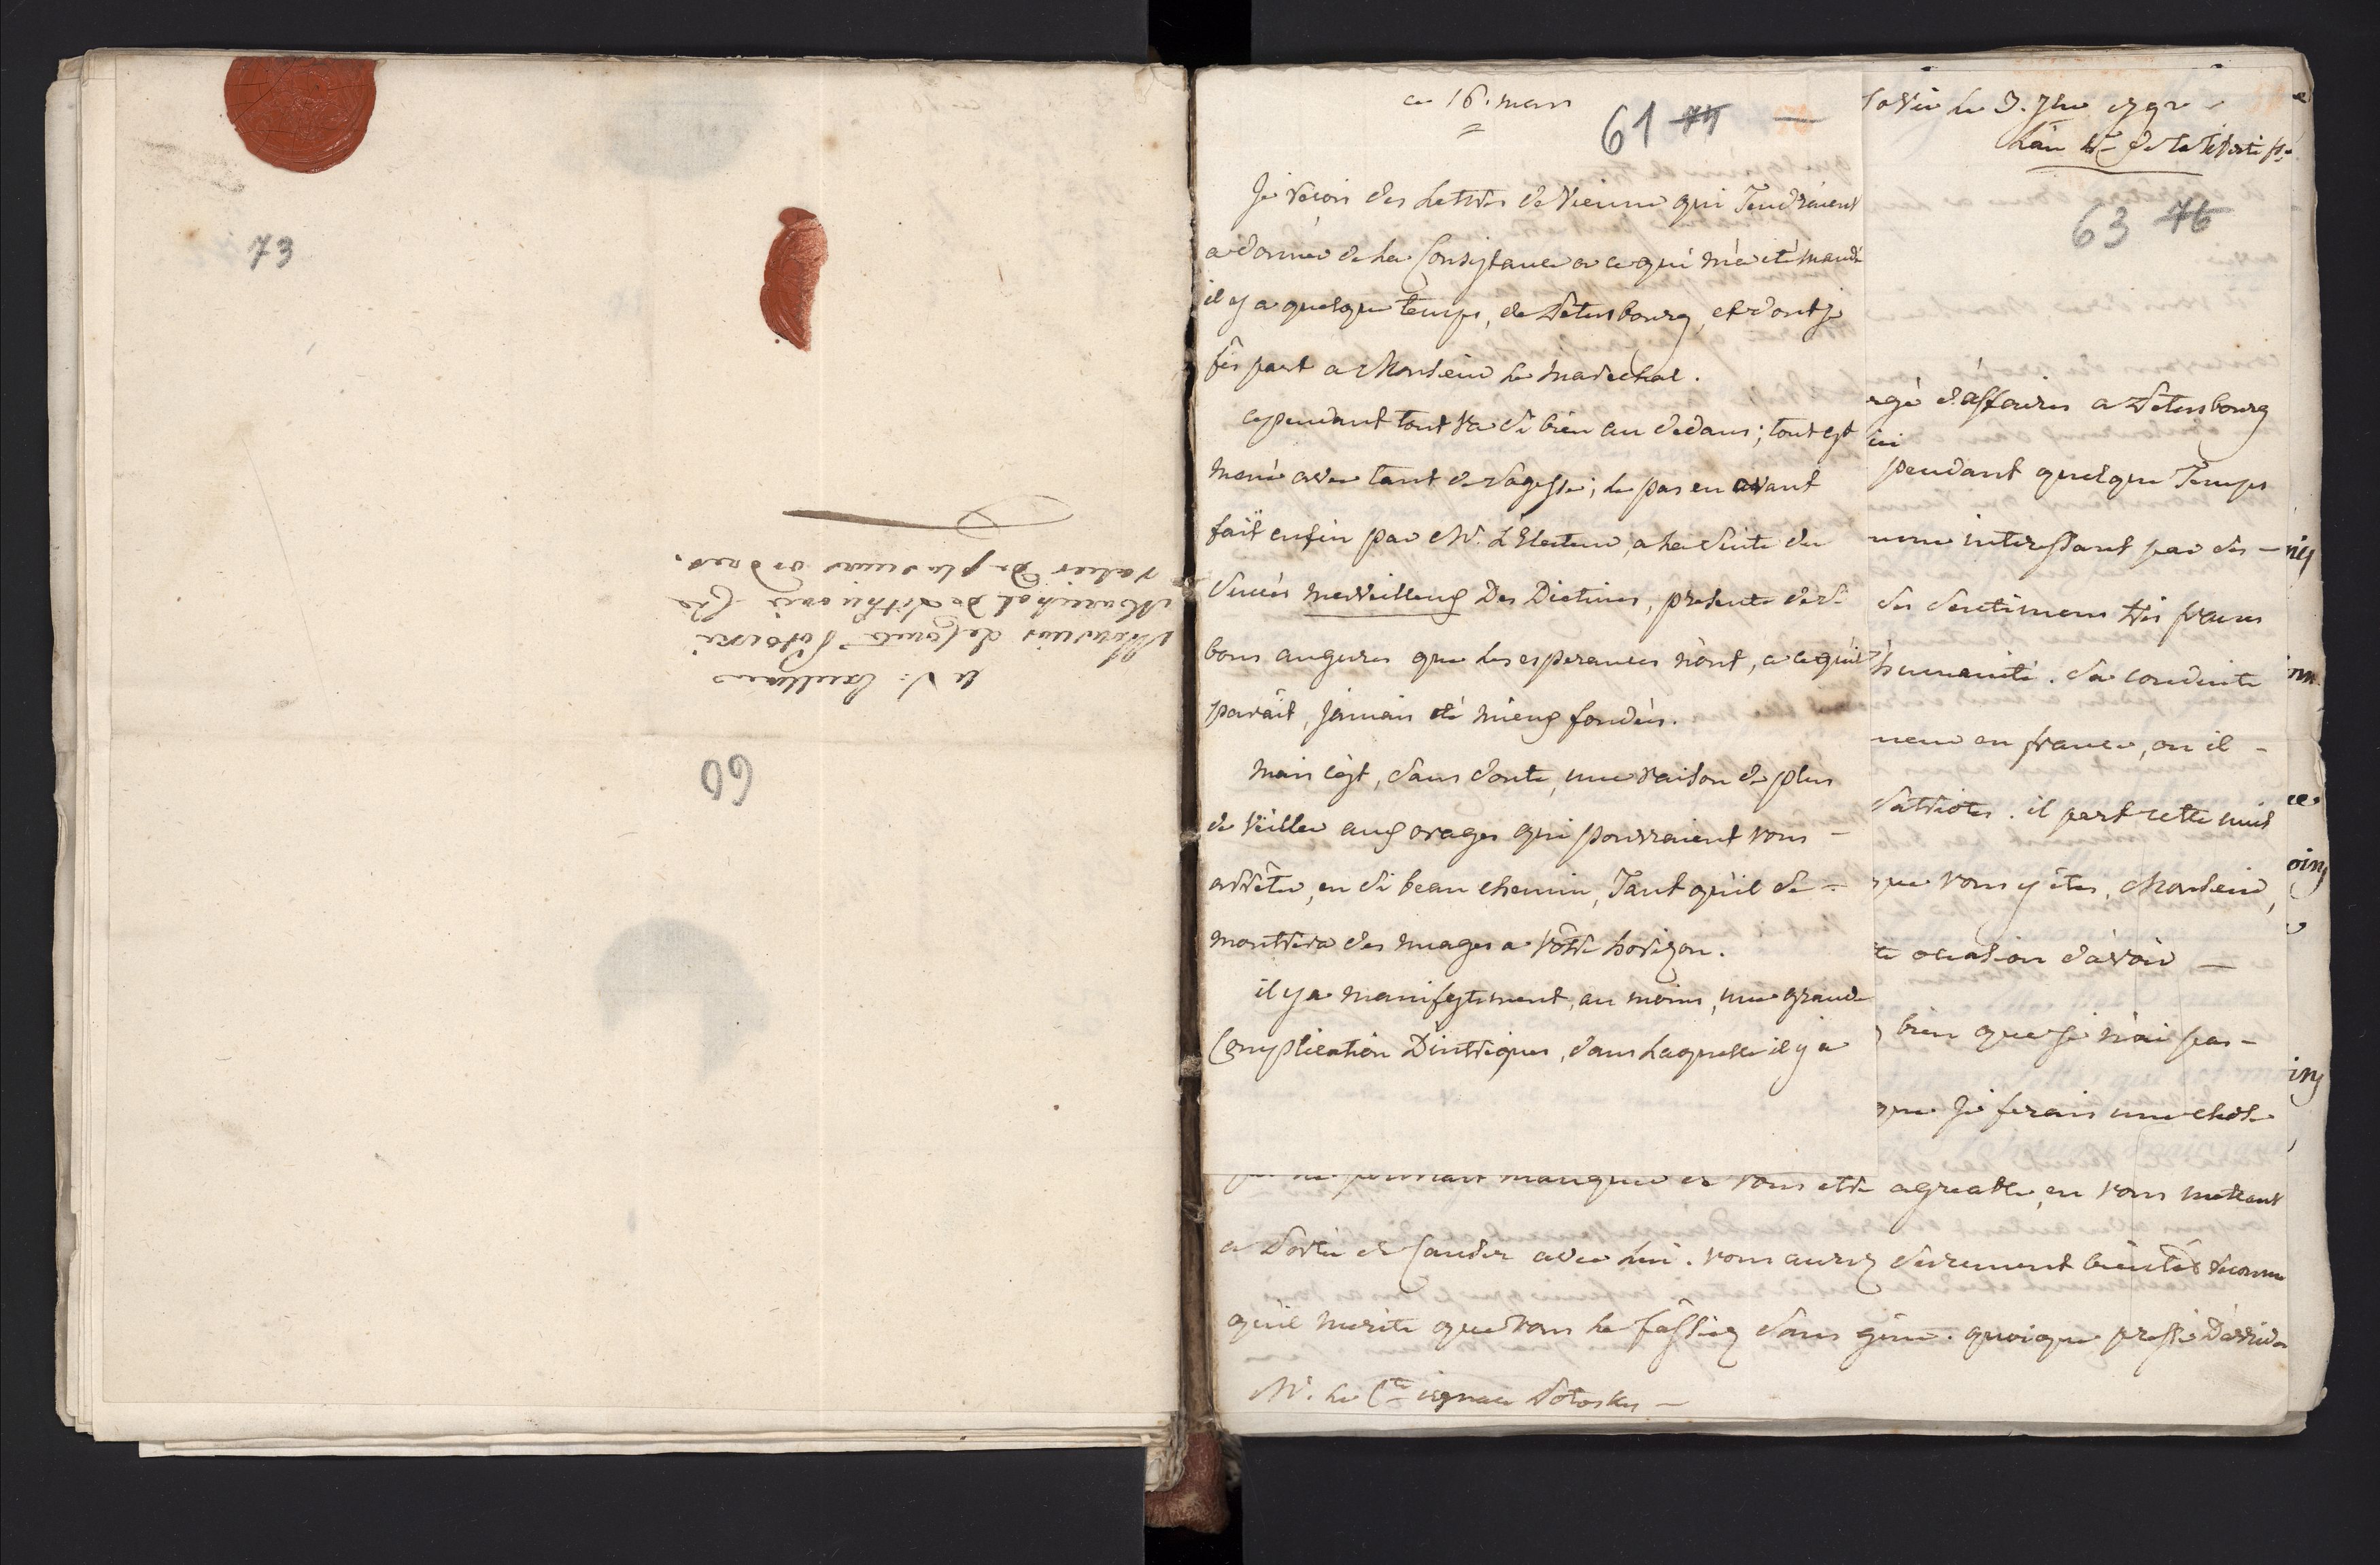 73
a S. Excellence
Monsieur le Comte Potocki
Marechal de Lithuanie Che
valier de plusieurs ordres.
60
ce 16. mars
61
Je reçois des Lettres de Vienne qui Tendraient
a donner de la Consistance a ce qui m'a été mandé
il y a quelque temps, de Petersbourg, et dont je
fis part a Monsieur le Marechal.
cependant tout va si bien au dedans; tout est
mené avec tant de sagesse; le pas en avant
fait enfin par Mr. L'Electeur, a la suite du
succès merveilleux Des Dietines, presente de si
bons augures que les esperances n'ont, a ce qu'il
parait, jamais été mieux fondées.
mais c'est, sans doute, une raison de plus
de veiller aux orages qui pourraient vous -
arrêter, en si beau chemin, Tant qu'il se -
montrera des nuages a vôtre horizon.
il y a manifestement, au moins, une grande
Complication D'intrigues, dans laquelle il y a
le 3. 7bre 1792
63 76
rgé d'affaires a Petersbourg
ici
pendant quelque Temps
interessant par des -
des sentimens très francs
humanité. sa conduite
en france, ou il -
Patriotes. il part cette nuit
que vous y êtes, Monsieur,
te ocasion d'avoir -
bien que je n'ai pas -
que je ferais une chose
manquer de vous etre agreable, en vous mettant
a Portée de Causer avec lui. vous aurez surement bientôt reconnu
qu'il merite que vous le fassiez sans gêne. quoique pressé D'arriver
Mr. le Cte ignace Potosky -